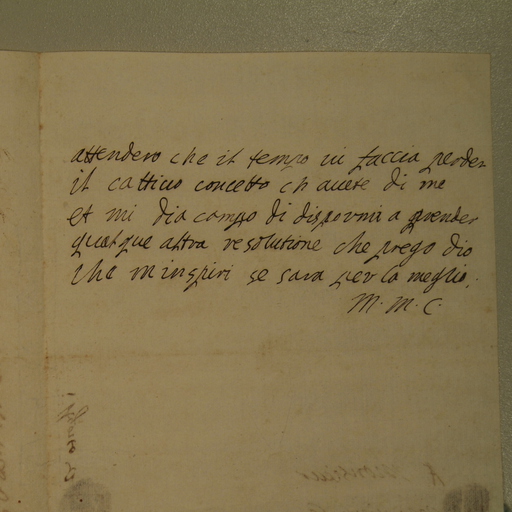 attendero che il tempo vi faccia perder
il cattivo concetto ch avete di me
et mi dia campo di disporvi a prender
qualque altra resolutione che prego dio
che m inspiri se sara per lo meglio.
M. M. C.
A Monsieur